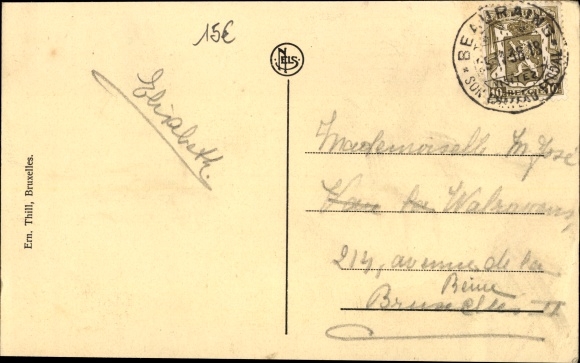 15€
NELS
BEAURAING
Elisabeth
Mademoiselle M. José
Van der Walravens,
214, avenue de la
Reine
Bruxelles II
Ern. Thill, Bruxelles.